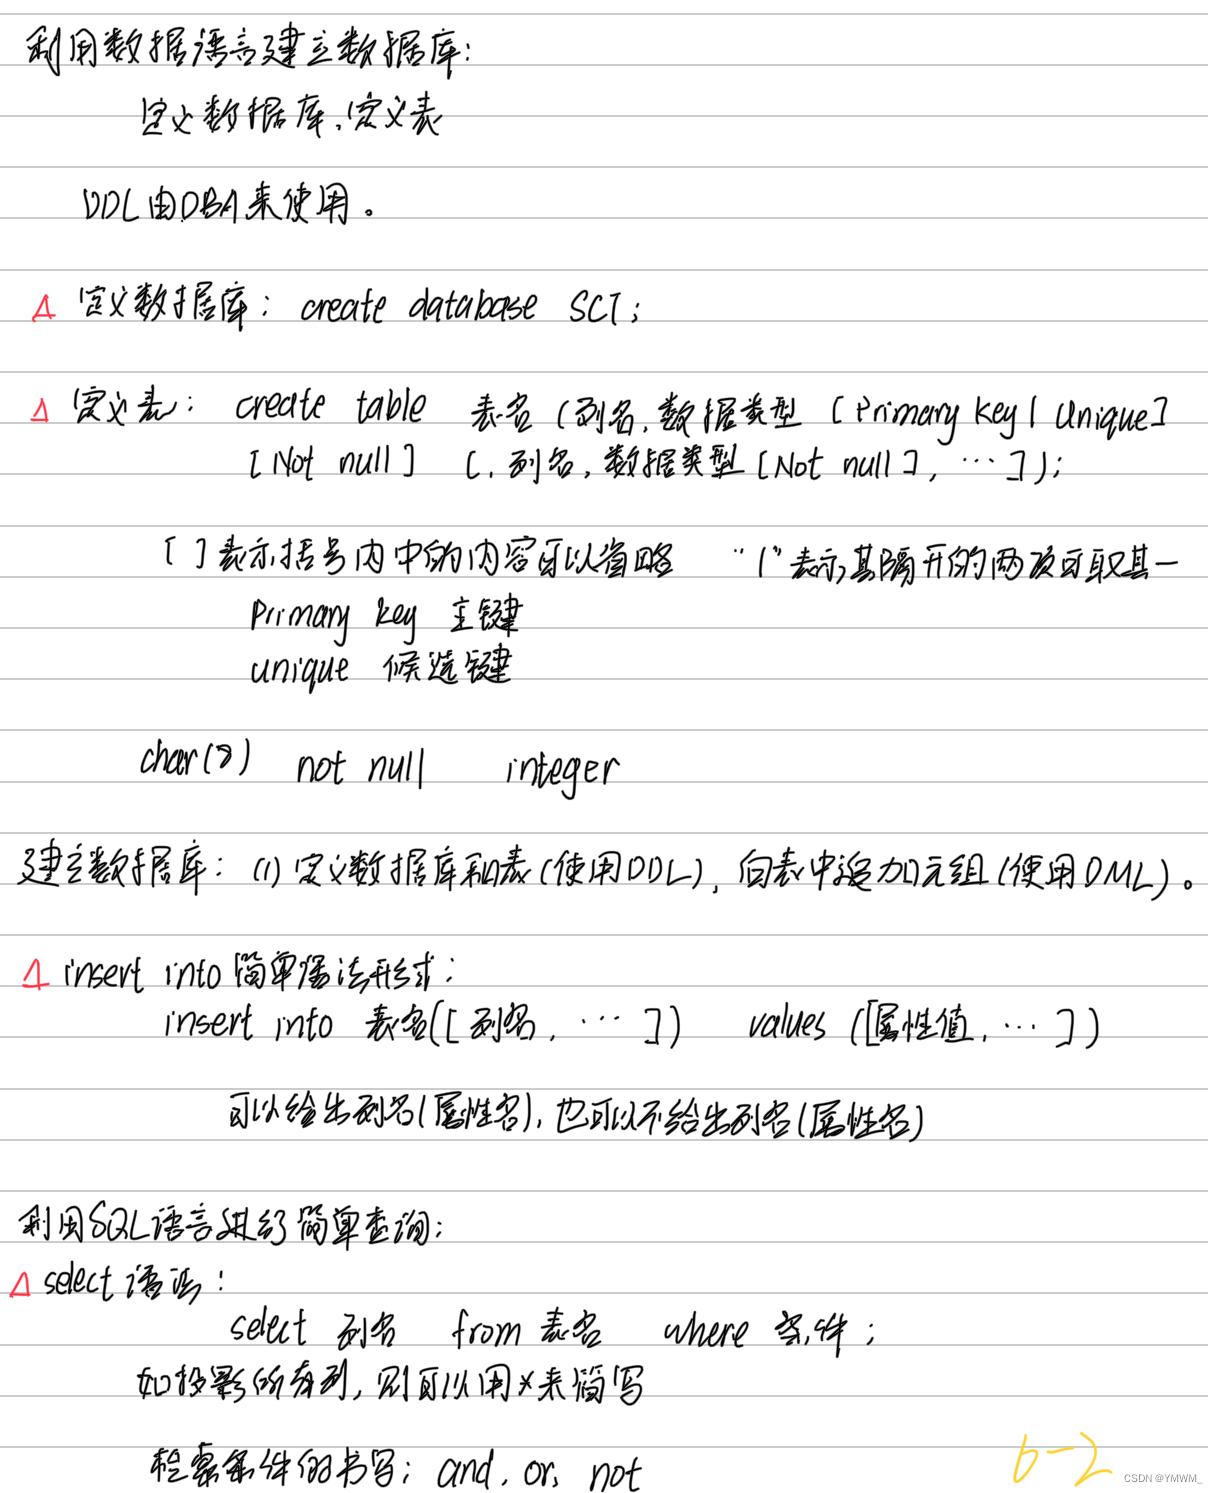 利用数据语言建立数据库:
定义数据库,定义表
DDL由DBA来使用。
△ 定义数据库: create database SCT;
△ 定义表: create table 表名 (列名,数据类型 [Primary key | Unique]
[Not null] [,列名,数据类型 [Not null], … ]);
[ ]表示括号内中的内容可以省略 “|”表示其隔开的两项可取其一
Primary key 主键
unique 候选键
char(8) not null integer
建立数据库: (1) 定义数据库和表(使用DDL), 向表中追加元组(使用DML)。
△ insert into 简单语法形式:
insert into 表名([列名, … ]) values ([属性值, … ])
可以给出列名(属性名), 也可以不给出列名(属性名)
利用SQL语言进行简单查询:
△ select 语法:
select 列名 from 表名 where 条件;
如投影所有列, 则可以用*来简写
检索条件的书写: and, or, not
6-2
CSDN @YMWM_